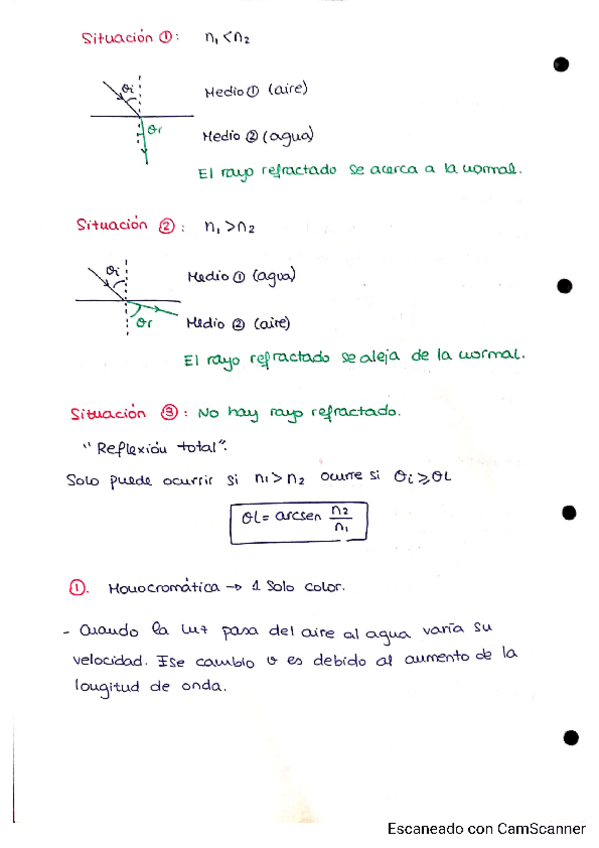 Situación ①: n₁ < n₂
θi
Medio ① (aire)
θr
Medio ② (agua)
El rayo refractado se acerca a la normal.
Situación ②: n₁ > n₂
θi
Medio ① (agua)
θr
Medio ② (aire)
El rayo refractado se aleja de la normal.
Situación ③: No hay rayo refractado.
"Reflexión total".
Solo puede ocurrir si n₁ > n₂ ocurre si θi ⩾ θL
θL = arcsen n₂/n₁
①. Monocromática → 1 Solo color.
- Cuando la luz pasa del aire al agua varía su
velocidad. Ese cambio v es debido al aumento de la
longitud de onda.
Escaneado con CamScanner